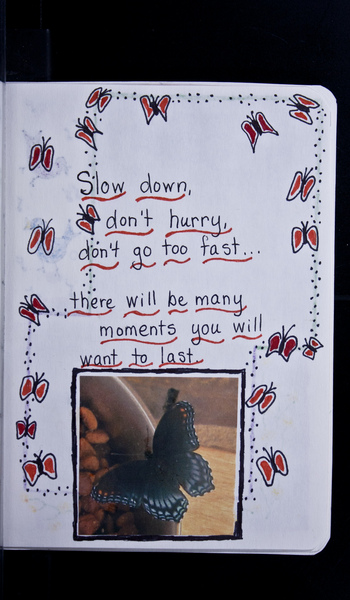 Slow down,
don't hurry,
don't go too fast...
there will be many
moments you will
want to last.